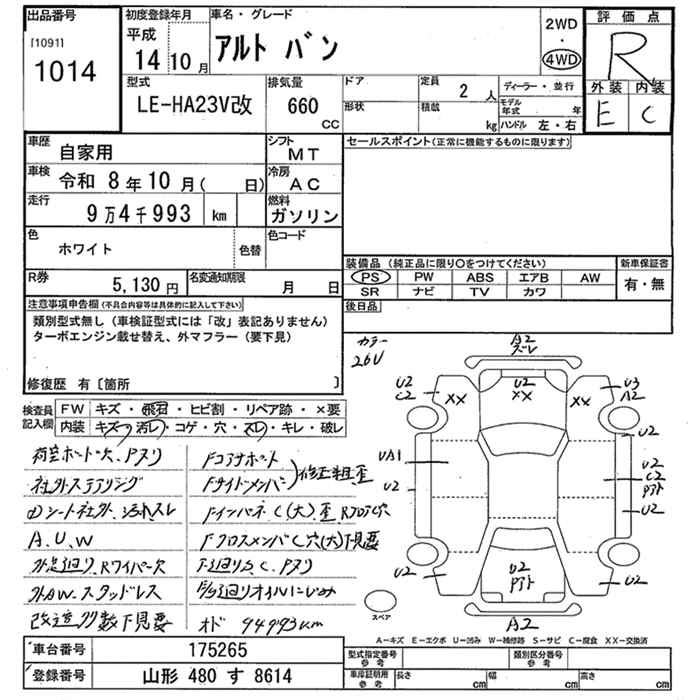 出品番号
[1091]
1014
初度登録年月
平成
14 10月
車名・グレード
アルト バン
2WD
・
4WD
評価点
R
外装 内装
E C
型式
LE-HA23V改
排気量
660
CC
ドア
形状
定員
2 人
積載
kg
ディーラー・並行
モデル年式 年
ハンドル 左・右
車歴
自家用
シフト
MT
車検
令和 8年10月( 日)
冷房
AC
走行
9万4千993 km
燃料
ガソリン
色
ホワイト
色替
色コード
R券
5,130円
名変通知期限
月 日
セールスポイント(正常に機能するものに限ります)
装備品(純正品に限り○をつけてください)
PS PW ABS エアB AW
SR ナビ TV カワ
新車保証書
有・無
後日品
注意事項申告欄(不具合内容等は具体的に記入して下さい)
類別型式無し(車検証型式には「改」表記ありません)
ターボエンジン載せ替え、外マフラー(要下見)
修復歴 有〔箇所 〕
検査員記入欄
FW キズ・飛石・ヒビ割・リペア跡・×要
内装 キズ・汚レ・コゲ・穴・スレ・キレ・破レ
社外ステアリング
シート社外、汚れスレ
A.U.W
外AW.スタッドレス
改造多数下見要
Fコアサポート
Fサイドメンバー
修正粗歪
Fインパネ C(大)歪
Fクロスメンバ C穴(大)下見要
下廻りS.C.Pスリ
オイルにじみ
オド 94993km
カラー
26U
A2
ズレ
U2
C2
XX
U2
XX
XX
U3
A2
UA1
U2
U2
U2
C2
Pアト
U2
U2
U2
Pアト
U2
A2
スペア
A-キズ E-エクボ U-凹み W-補修跡 S-サビ C-腐食 XX-交換済
車台番号
175265
登録番号
山形 480 す 8614
型式指定番号
参考
類別区分番号
参考
車庫証明用
参考
長さ cm
幅 cm
高さ cm